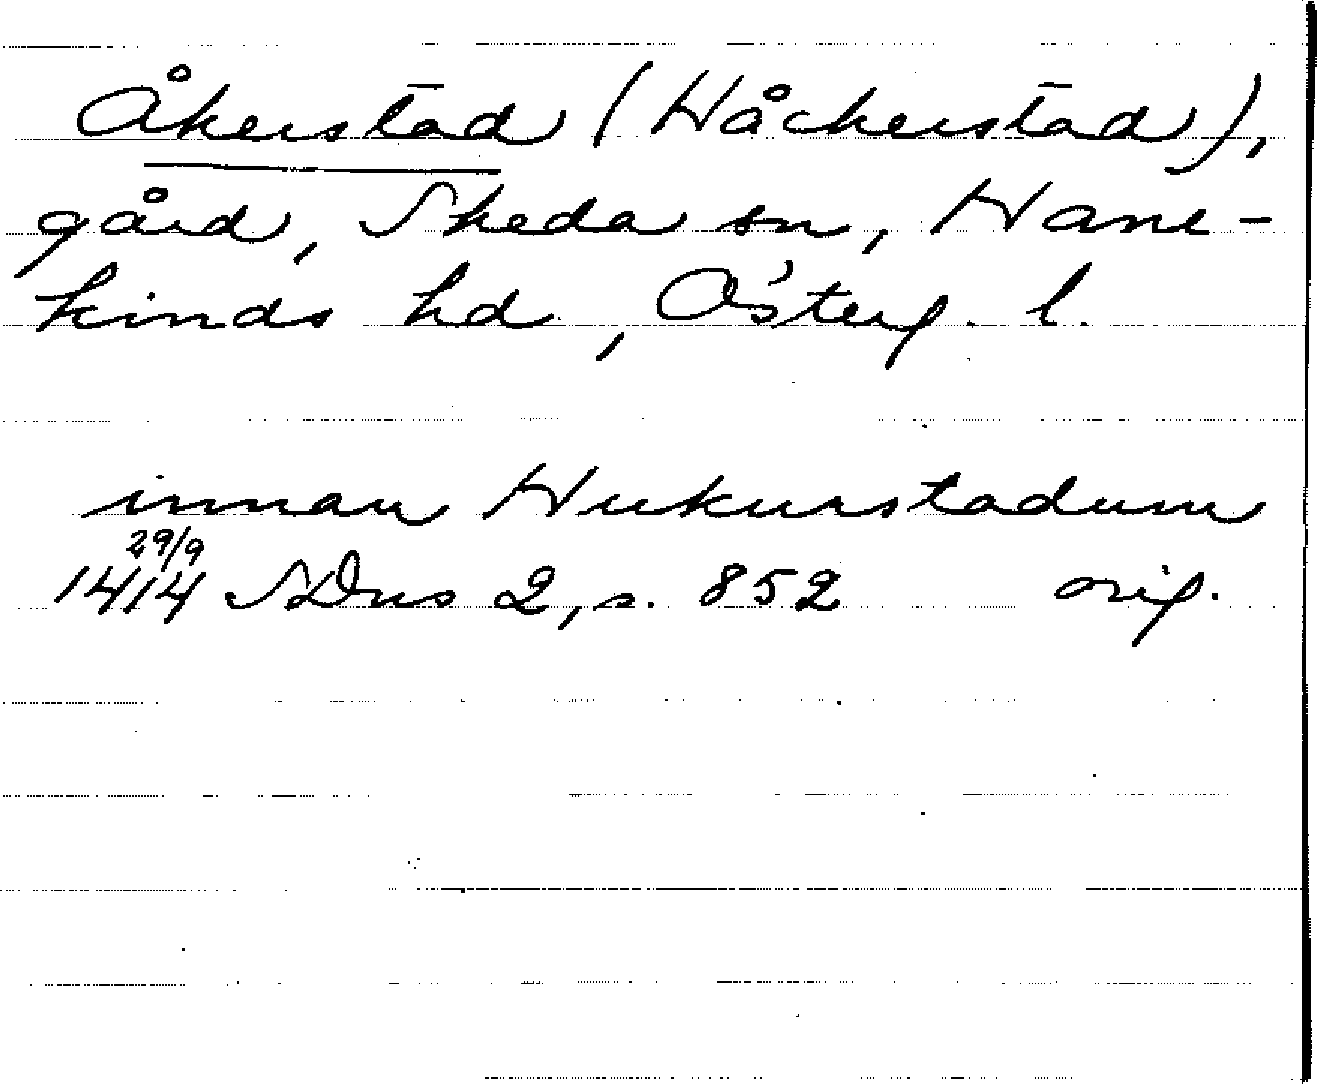 Åkerstad (Håckerstad),
gård, Skeda sn, Hane-
kinds hd, Österg. l.
innan Hukurstadum
29/9
1414 SDns 2, s. 852 orig.